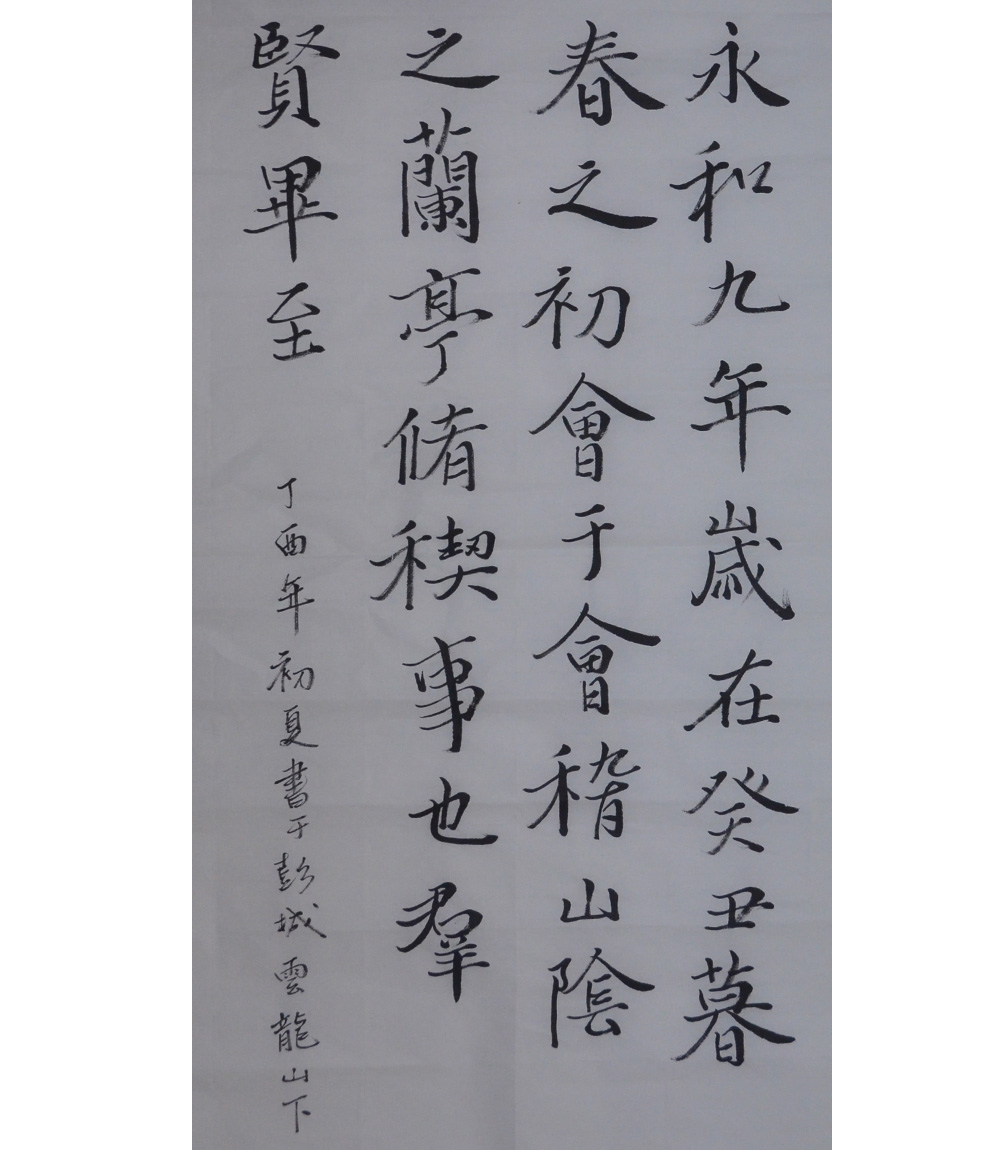 永和九年歲在癸丑暮
春之初會于會稽山陰
之蘭亭脩稧事也羣
賢畢至
丁酉年初夏書于彭城雲龍山下